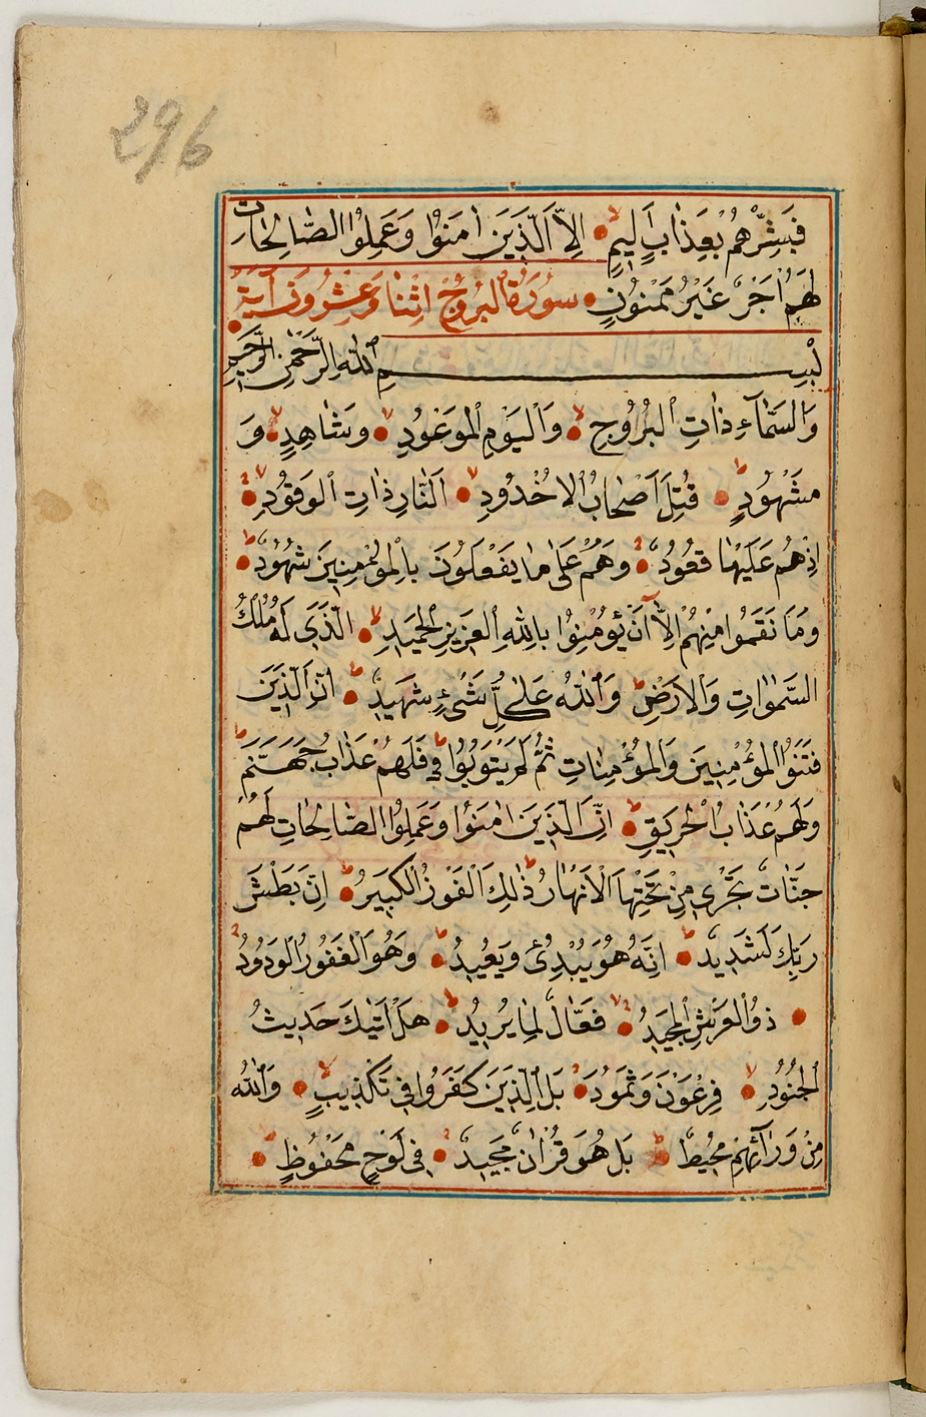 296
فَبَشِّرْهُمْ بِعَذَابٍ اَلِيمٍ اِلَّا الَّذِينَ اٰمَنُوا وَعَمِلُوا الصَّالِحَاتِ
لَهُمْ اَجْرٌ غَيْرُ مَمْنُونٍ سُورَةُ الْبُرُوجِ اثْنَا وَعِشْرُونَ آيَةً
بِسْمِ اللّٰهِ الرَّحْمٰنِ الرَّحِيمِ
وَالسَّمَآءِ ذَاتِ الْبُرُوجِ وَالْيَوْمِ الْمَوْعُودِ وَشَاهِدٍ وَ
مَشْهُودٍ قُتِلَ اَصْحَابُ الْاُخْدُودِ اَلنَّارِ ذَاتِ الْوَقُودِ
اِذْ هُمْ عَلَيْهَا قُعُودٌ وَهُمْ عَلٰى مَا يَفْعَلُونَ بِالْمُؤْمِنِينَ شُهُودٌ
وَمَا نَقَمُوا مِنْهُمْ اِلَّا اَنْ يُؤْمِنُوا بِاللّٰهِ الْعَزِيزِ الْحَمِيدِ الَّذِى لَهُ مُلْكُ
السَّمٰوَاتِ وَالْاَرْضِ وَاللّٰهُ عَلٰى كُلِّ شَىْءٍ شَهِيدٌ اِنَّ الَّذِينَ
فَتَنُوا الْمُؤْمِنِينَ وَالْمُؤْمِنَاتِ ثُمَّ لَمْ يَتُوبُوا فَلَهُمْ عَذَابُ جَهَنَّمَ
وَلَهُمْ عَذَابُ الْحَرِيقِ اِنَّ الَّذِينَ اٰمَنُوا وَعَمِلُوا الصَّالِحَاتِ لَهُمْ
جَنَّاتٌ تَجْرِى مِنْ تَحْتِهَا الْاَنْهَارُ ذٰلِكَ الْفَوْزُ الْكَبِيرُ اِنَّ بَطْشَ
رَبِّكَ لَشَدِيدٌ اِنَّهُ هُوَ يُبْدِئُ وَيُعِيدُ وَهُوَ الْغَفُورُ الْوَدُودُ
ذُو الْعَرْشِ الْمَجِيدُ فَعَّالٌ لِمَا يُرِيدُ هَلْ اَتٰيكَ حَدِيثُ
الْجُنُودِ فِرْعَوْنَ وَثَمُودَ بَلِ الَّذِينَ كَفَرُوا فِى تَكْذِيبٍ وَاللّٰهُ
مِنْ وَرَآئِهِمْ مُحِيطٌ بَلْ هُوَ قُرْاٰنٌ مَجِيدٌ فِى لَوْحٍ مَحْفُوظٍ